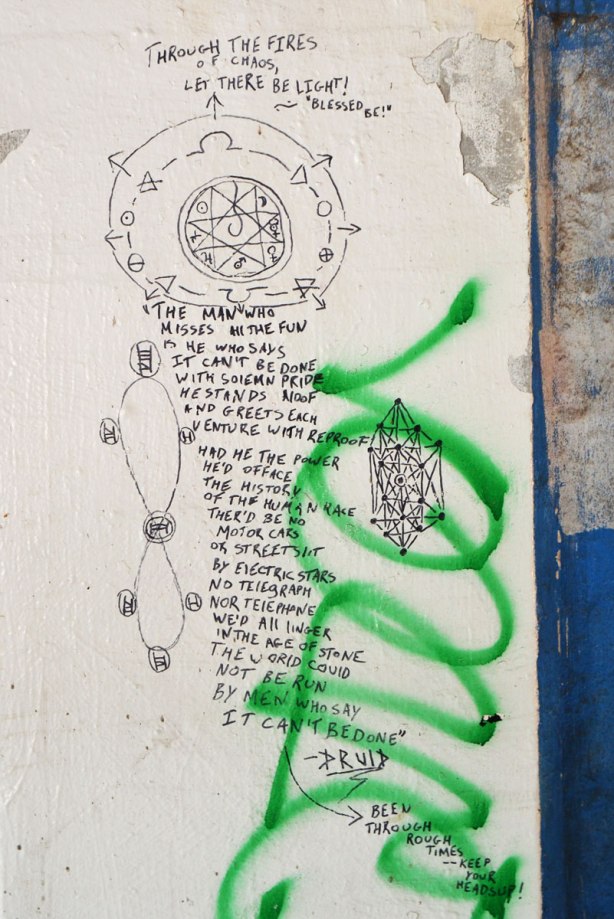 THROUGH THE FIRES
OF CHAOS,
LET THERE BE LIGHT!
~ "BLESSED
BE!"
"THE MAN WHO
MISSES All THE FUN
IS HE WHO SAYS
IT CAN'T BE DONE
WITH SOlEMN PRIDE
HE STANDS AlOOF
AND GREETS EACH
VENTURE WITH REPROOF
HAD HE THE POWER
HE'D OFFACE
THE HISTORY
OF THE HUMAN RACE
THER'D BE NO
MOTOR CARS
OR STREETSlIT
BY ElECTRIC STARS
NO TElEGRAPH
NOR TElEPHONE
WE'D All lINGER
IN THE AGE OF STONE
THE WORlD COUlD
NOT BE RUN
BY MEN WHO SAY
IT CAN'T BE DONE"
-DRUID
BEEN
THROUGH
ROUGH
TIMES
--KEEP
YOUR
HEADS UP!